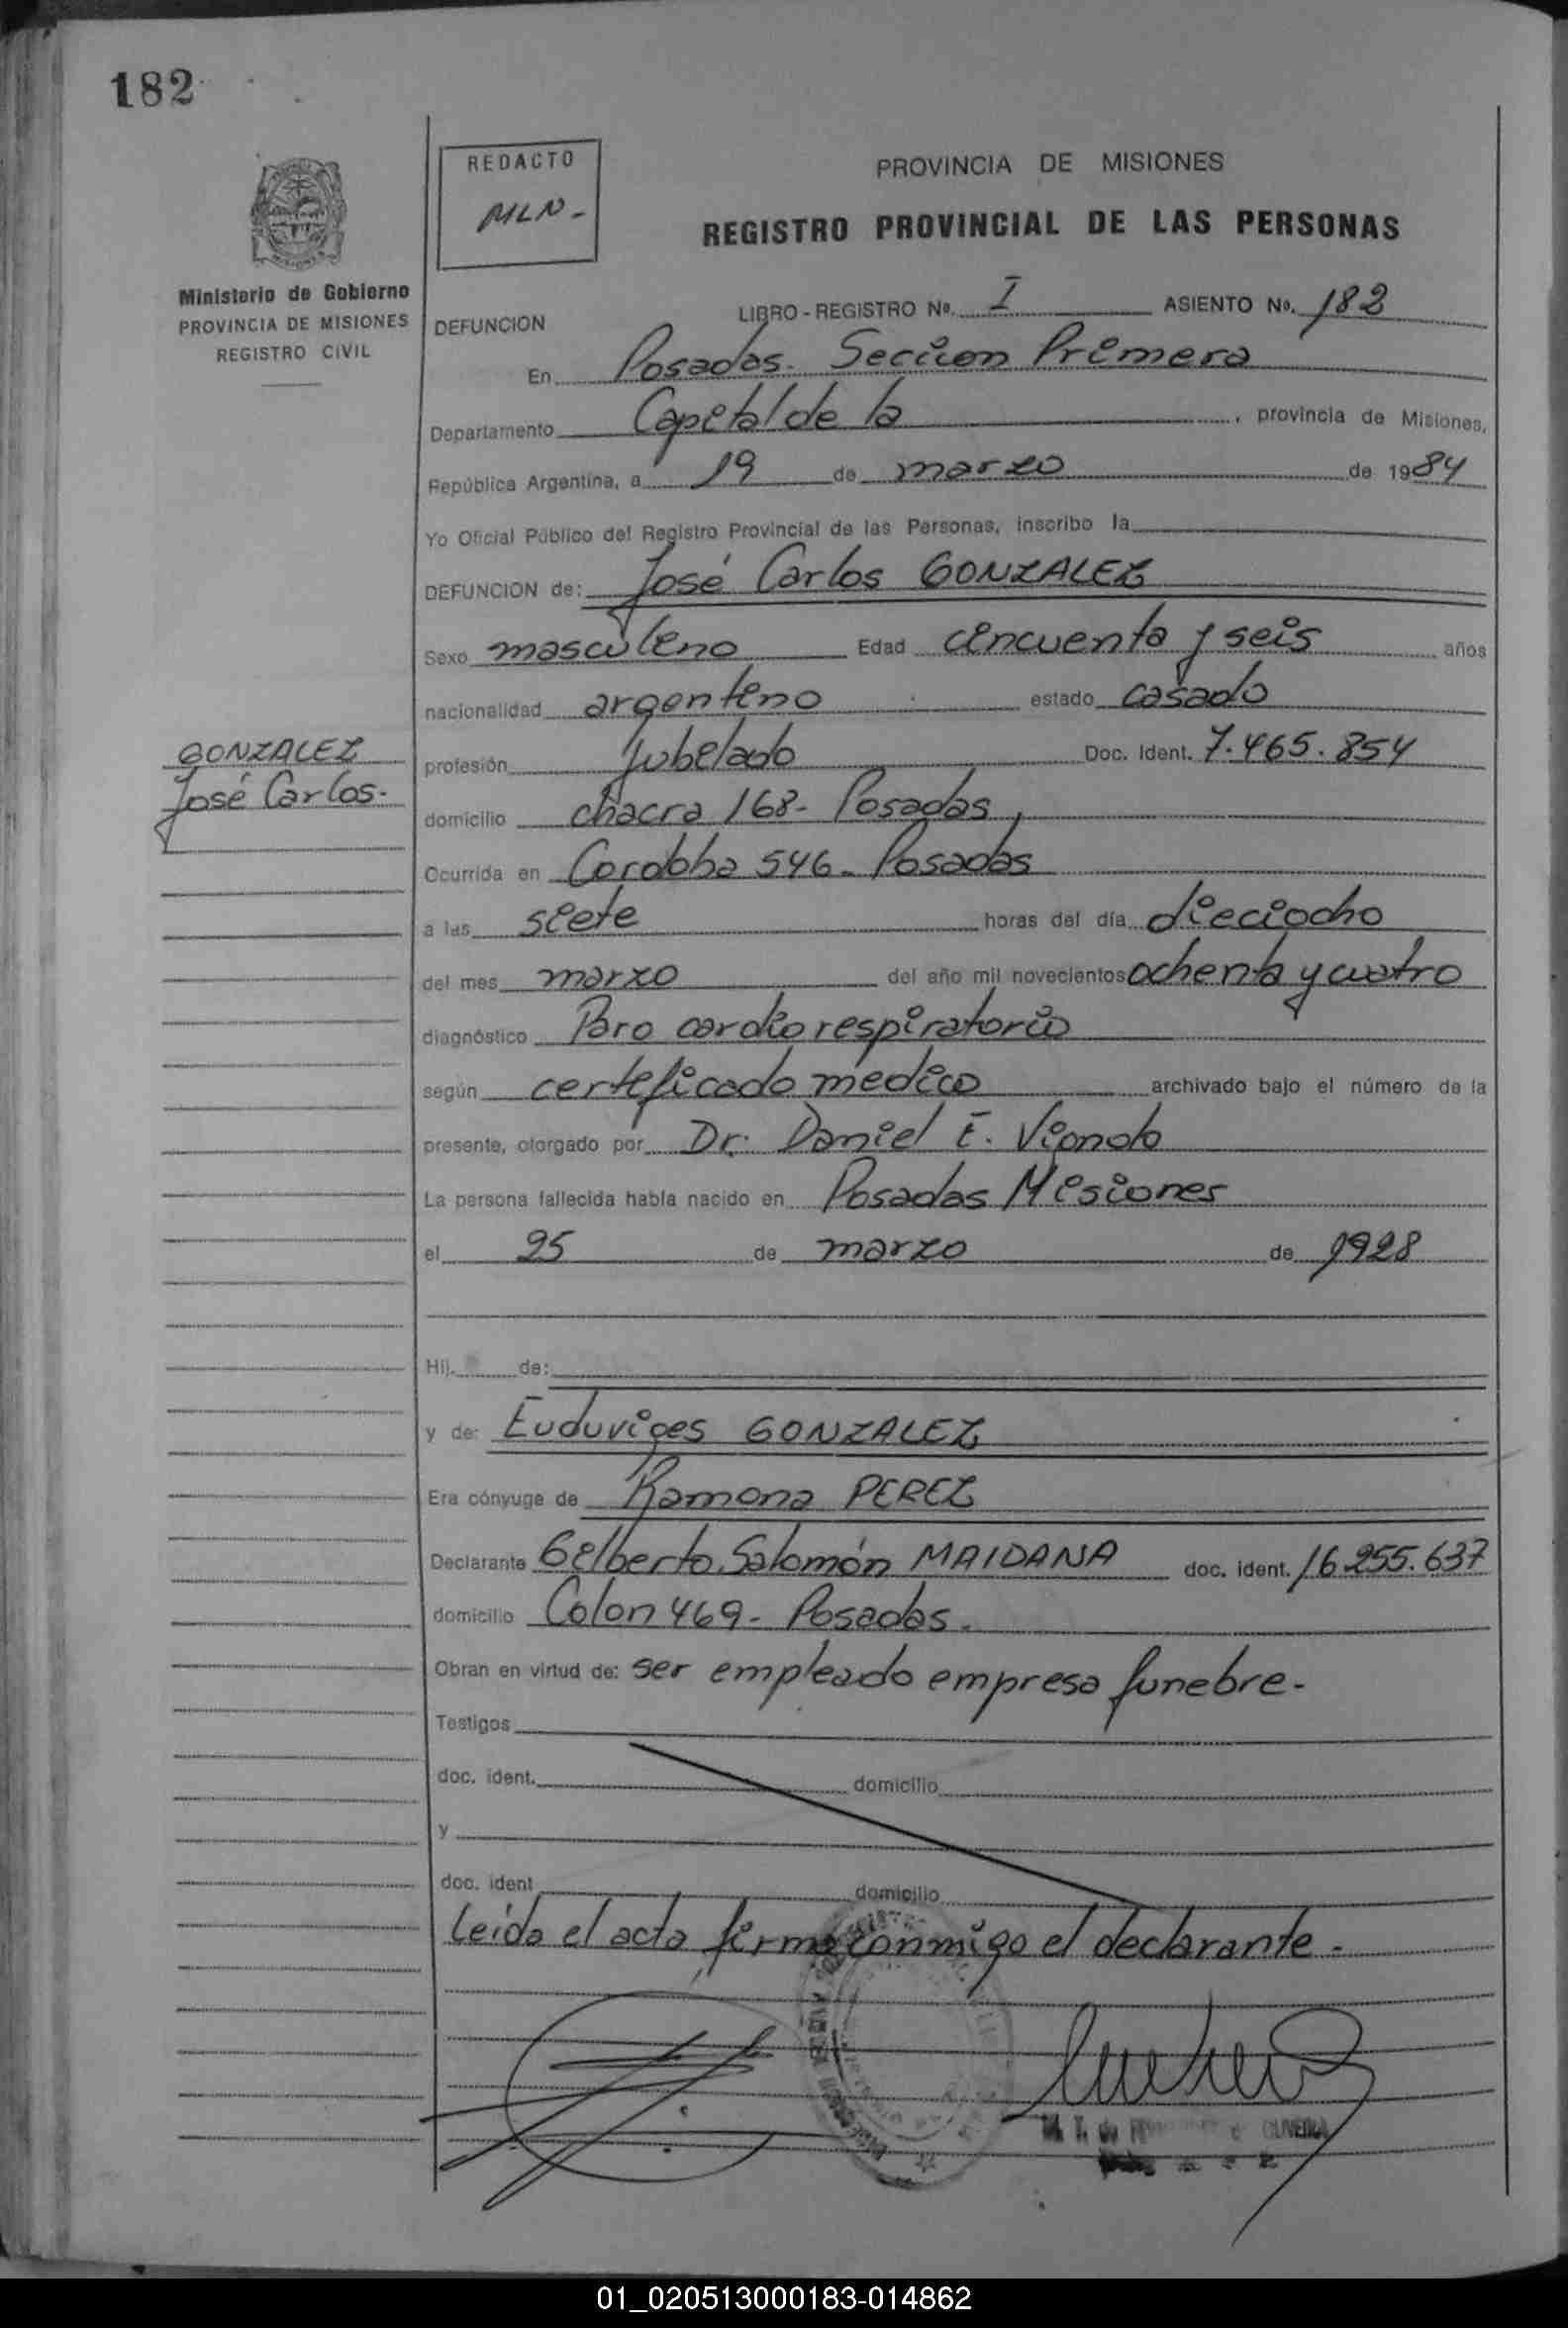 182
REDACTO
MLN-
PROVINCIA DE MISIONES
REGISTRO PROVINCIAL DE LAS PERSONAS
Ministerio de Gobierno
PROVINCIA DE MISIONES
REGISTRO CIVIL
DEFUNCION LIBRO - REGISTRO No. I ASIENTO No. 182
En Posadas. Seccion Primera
Departamento Capital de la , provincia de Misiones,
República Argentina, a 19 de marzo de 1984
Yo Oficial Público del Registro Provincial de las Personas, inscribo la
DEFUNCION de: José Carlos GONZALEZ
Sexo masculino Edad cincuenta y seis años
nacionalidad argentino estado casado
GONZALEZ
José Carlos-
profesión Jubilado Doc. Ident. 7.465.854
domicilio chacra 168- Posadas
Ocurrida en Cordoba 546- Posadas
a las siete horas del día dieciocho
del mes marzo del año mil novecientos ochenta y cuatro
diagnóstico Paro cardiorespiratorio
según certificado medico archivado bajo el número de la
presente, otorgado por Dr. Daniel E.
La persona fallecida había nacido en Posadas Misiones
el 25 de marzo de 1928
Hij. de:
y de: Euduviges GONZALEZ
Era cónyuge de Ramona PEREZ
Declarante Gilberto Salomón MAIDANA doc. ident. 16.255.637
domicilio Colon 469- Posadas.
Obran en virtud de: ser empleado empresa funebre-
Testigos
doc. ident. domicilio
y
doc. ident domicilio
Leida el acta firma conmigo el declarante-
M. T. de OLIVEIRA
01_020513000183-014862